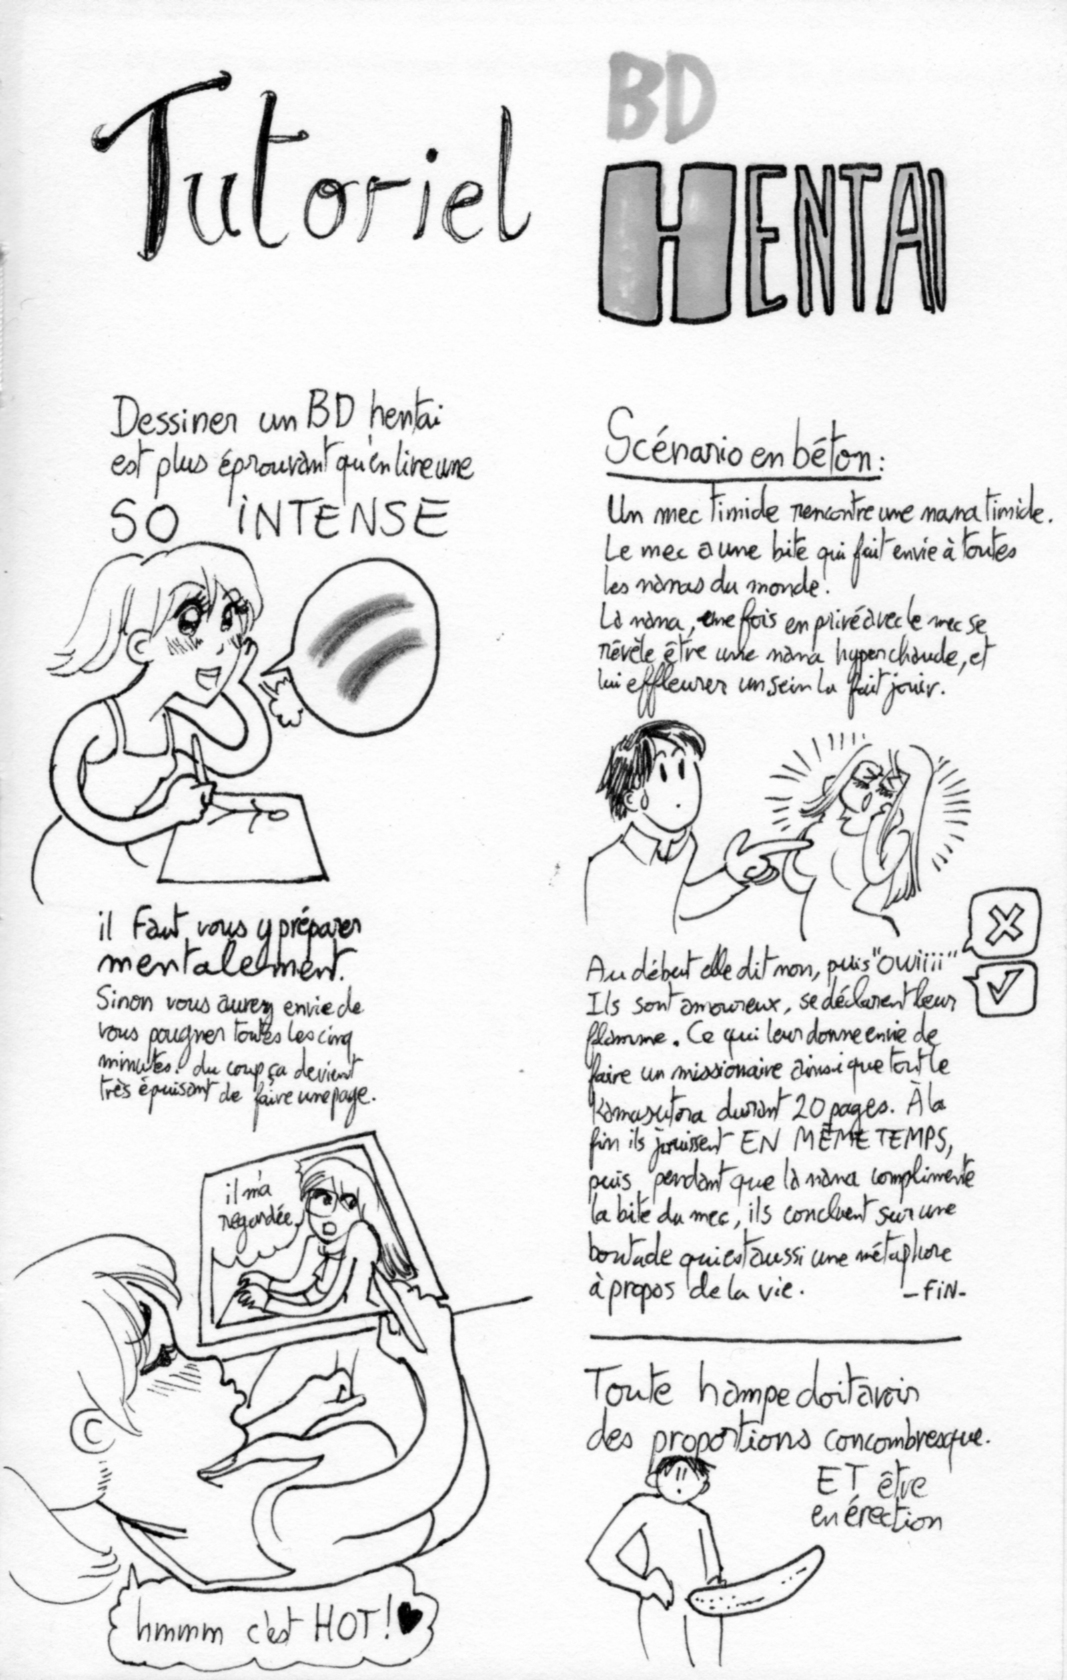 Tutoriel
BD
HENTAI
Dessiner un BD hentai
est plus éprouvant qu'en lire une
SO INTENSE
il Faut vous y préparer
mentalement.
Sinon vous aurez envie de
vous pougner toutes les cinq
minutes. du coup ça devient
très épuisant de faire une page.
il m'a
regardée
hmmm c'est HOT!
Scénario en béton:
Un mec timide rencontre une nana timide.
Le mec a une bite qui fait envie à toutes
les nanas du monde.
La nana, une fois en privé avec le mec se
révèle être une nana hyper chaude, et
lui effleurer un sein la fait jouir.
Au début elle dit non, puis "OWiiii"
Ils sont amoureux, se déclarent leur
flamme. Ce qui leur donne envie de
faire un missionaire ainsi que tout le
Kamasutra durant 20 pages. À la
fin ils jouissent EN MÊME TEMPS,
puis pendant que la nana complimente
la bite du mec, ils concluent sur une
boutade qui est aussi une métaphore
à propos de la vie. -FiN-
Toute hampe doit avoir
des proportions concombresque.
ET être
en érection